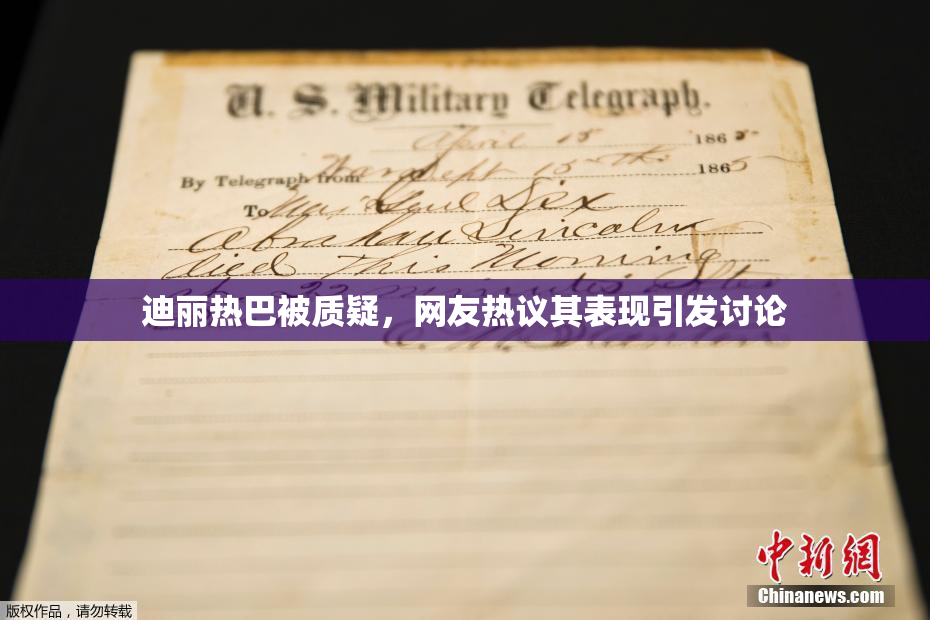 U. S. Military Telegraph.
April 15 1865
By Telegraph from War Dept 15th 1865
To Maj Genl Dix
Abraham Lincoln
died This Morning
22 minutes after
迪丽热巴被质疑，网友热议其表现引发讨论
E. M. Stanton
中新网
Chinanews.com
版权作品，请勿转载